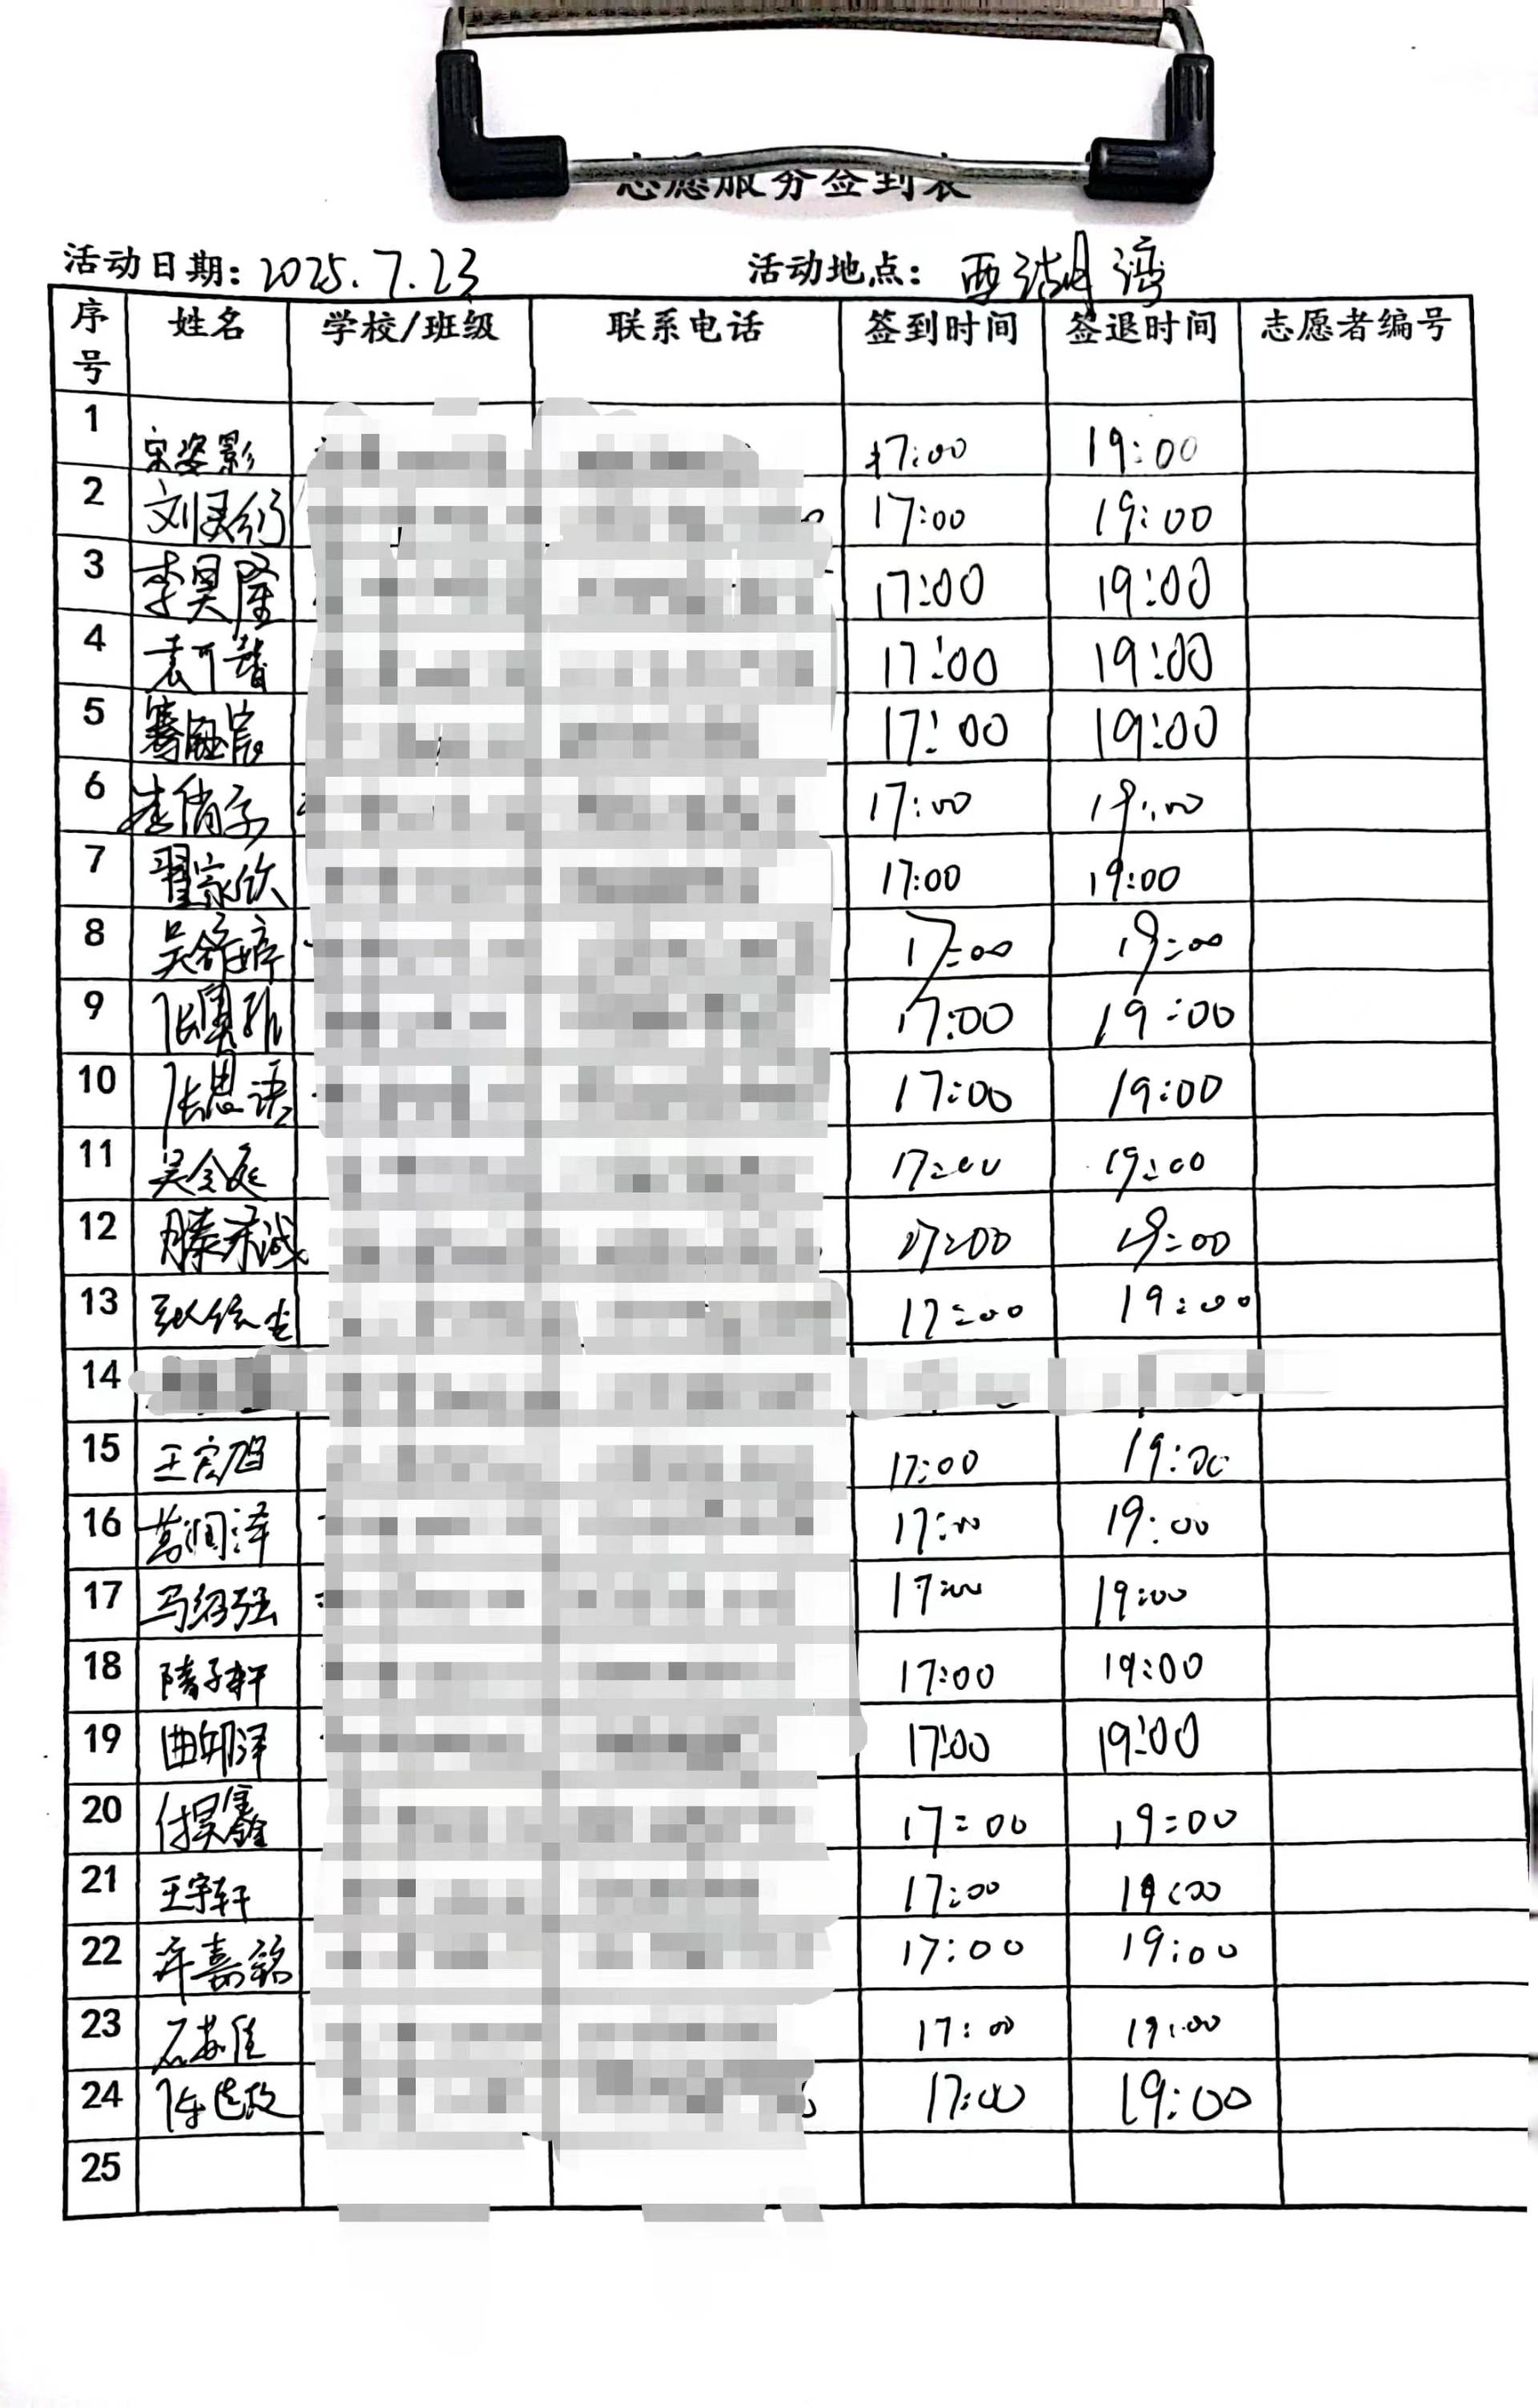 志愿服务签到表
活动日期: 2025.7.23 活动地点: 西湖湾
序号 姓名 学校/班级 联系电话 签到时间 签退时间 志愿者编号
1 宋姿影 17:00 19:00
2 17:00 19:00
3 李昊隆 17:00 19:00
4 袁可 17:00 19:00
5 17:00 19:00
6 17:00 19:00
7 翟家欣 17:00 19:00
8 吴舒婷 17:00 19:00
9 17:00 19:00
10 张思语 17:00 19:00
11 吴令庭 17:00 19:00
12 滕禾诚 17:00 19:00
13 17:00 19:00
14
15 17:00 19:00
16 葛润泽 17:00 19:00
17 马绍强 17:00 19:00
18 隋子轩 17:00 19:00
19 17:00 19:00
20 付昊鑫 17:00 19:00
21 王宇轩 17:00 19:00
22 许嘉铭 17:00 19:00
23 17:00 19:00
24 17:00 19:00
25